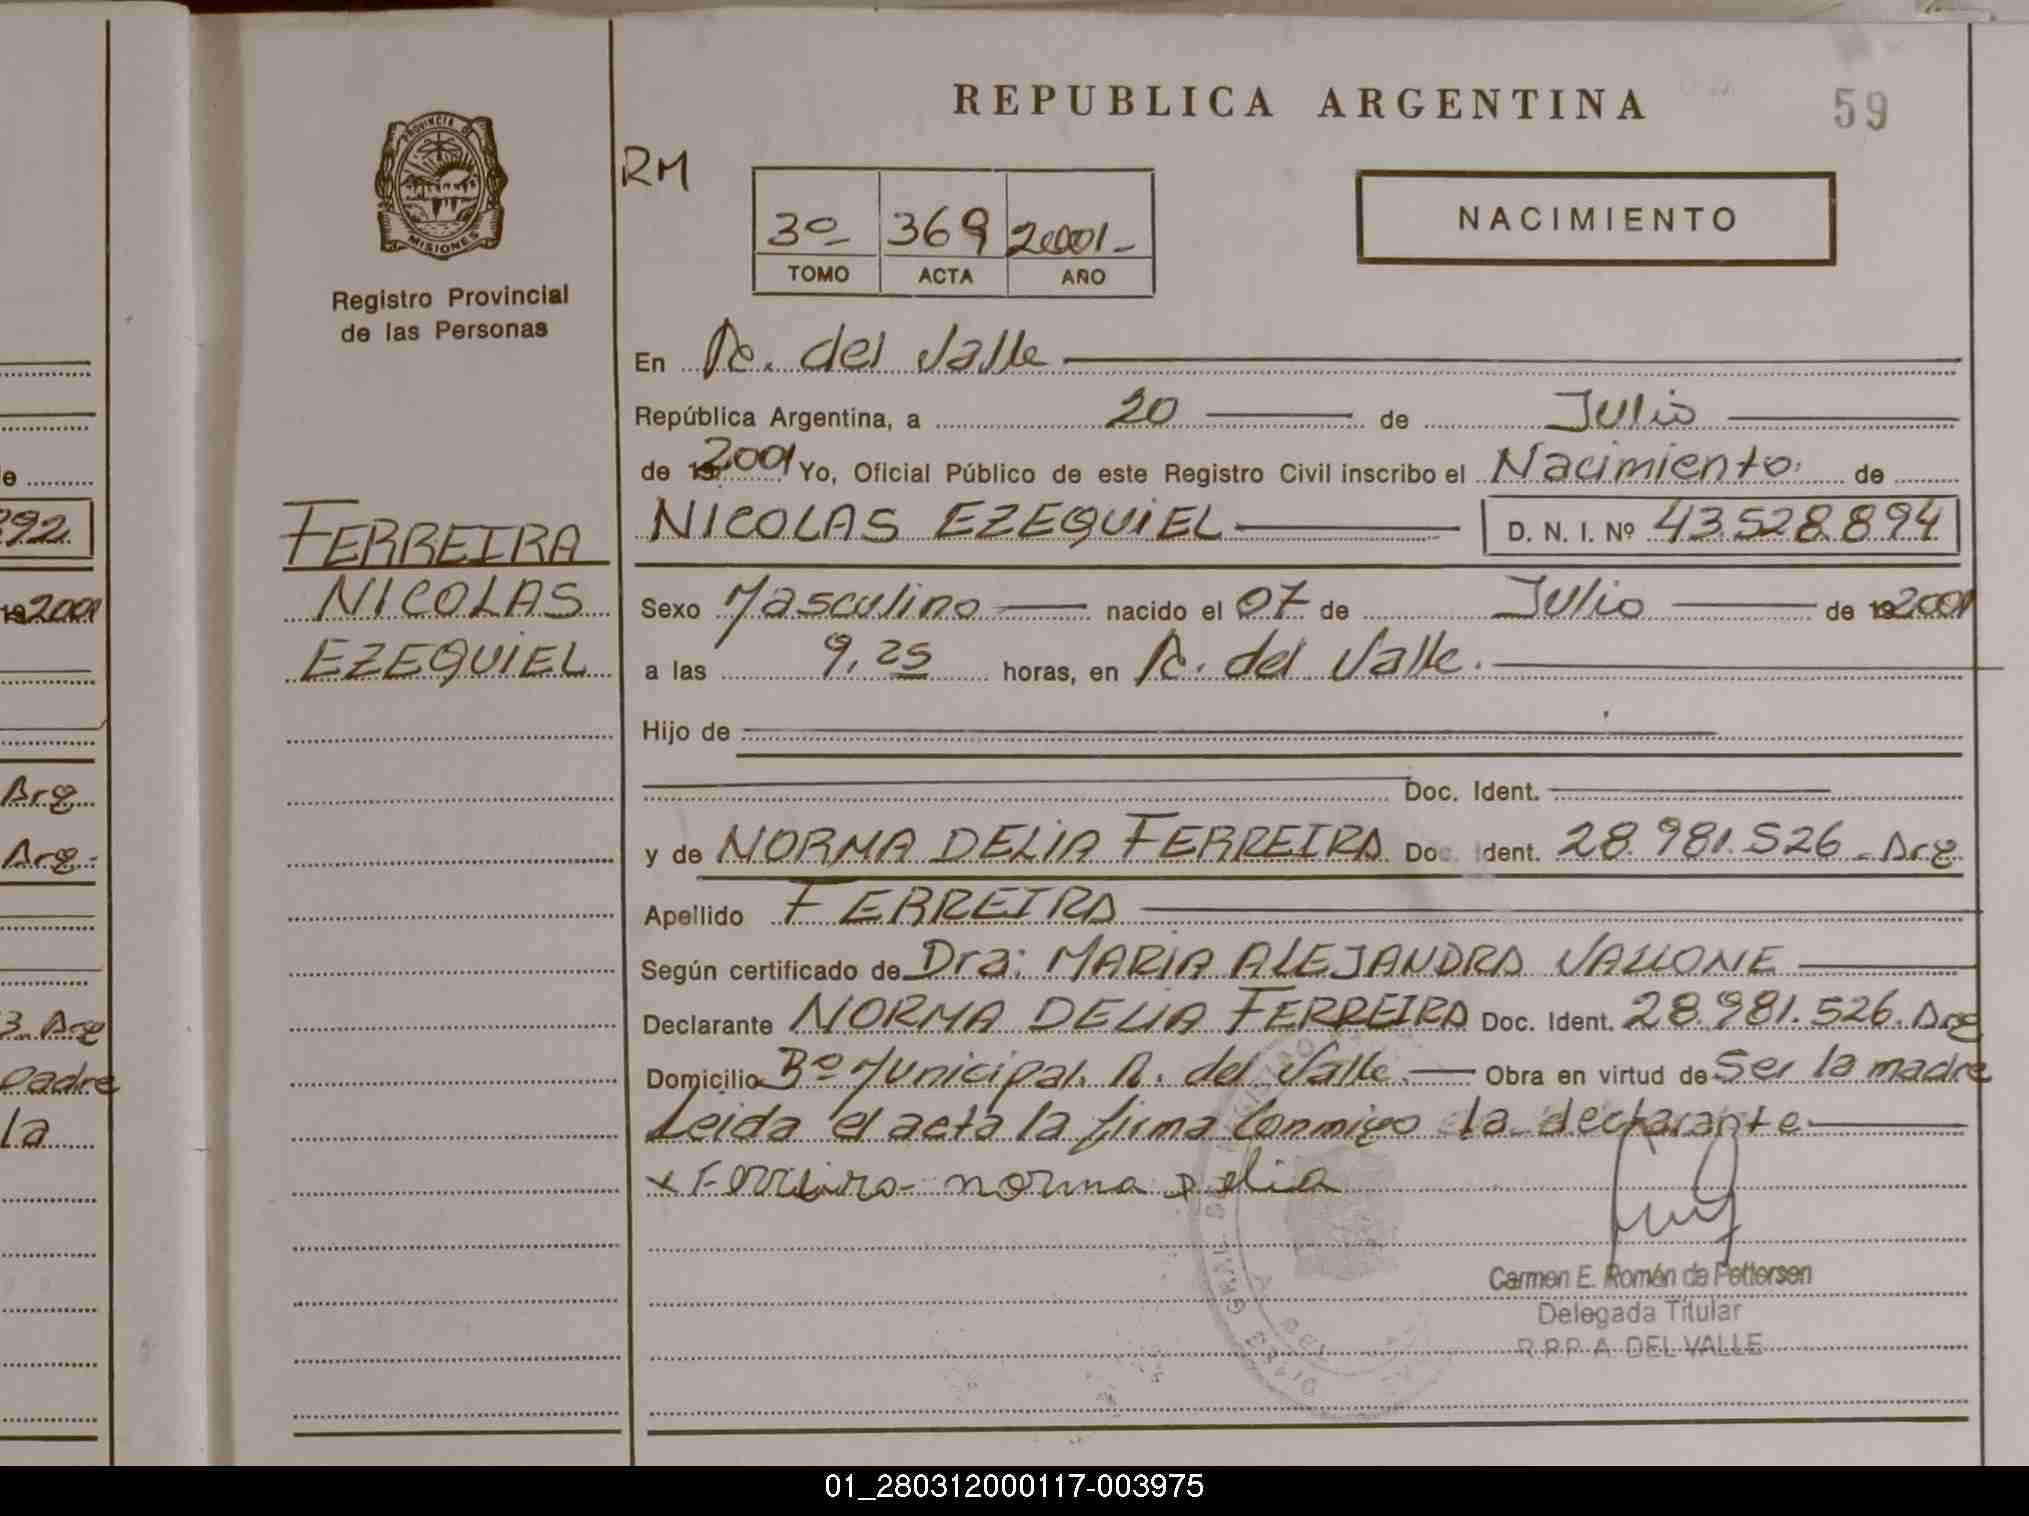 REPUBLICA ARGENTINA
59
PROVINCIA DE
MISIONES
Registro Provincial
de las Personas
RM
3º 369 2001-
TOMO ACTA AÑO
NACIMIENTO
En A. del Valle
República Argentina, a 20 de Julio
de 19 2001 Yo, Oficial Público de este Registro Civil inscribo el Nacimiento de
NICOLAS EZEQUIEL D. N. I. Nº 43.528.894
FERREIRA
NICOLAS
EZEQUIEL
Sexo Masculino nacido el 07 de Julio de 19 2001
a las 9,25 horas, en A. del Valle.
Hijo de
Doc. Ident.
y de NORMA DELIA FERREIRA Doc. Ident. 28.981.526 - Arg
Apellido FERREIRA
Según certificado de Dra: MARIA ALEJANDRA VALLONE
Declarante NORMA DELIA FERREIRA Doc. Ident. 28.981.526. Arg
Domicilio Bº Municipal. A. del Valle. Obra en virtud de Ser la madre
Leida el acta la firma Conmigo la declarante
x Ferreira norma Delia
Carmen E. Román de Pettersen
Delegada Titular
R.P.P. A. DEL VALLE
e
392
19 2001
Arg
Arg.
3. Arg
padre
la
01_280312000117-003975